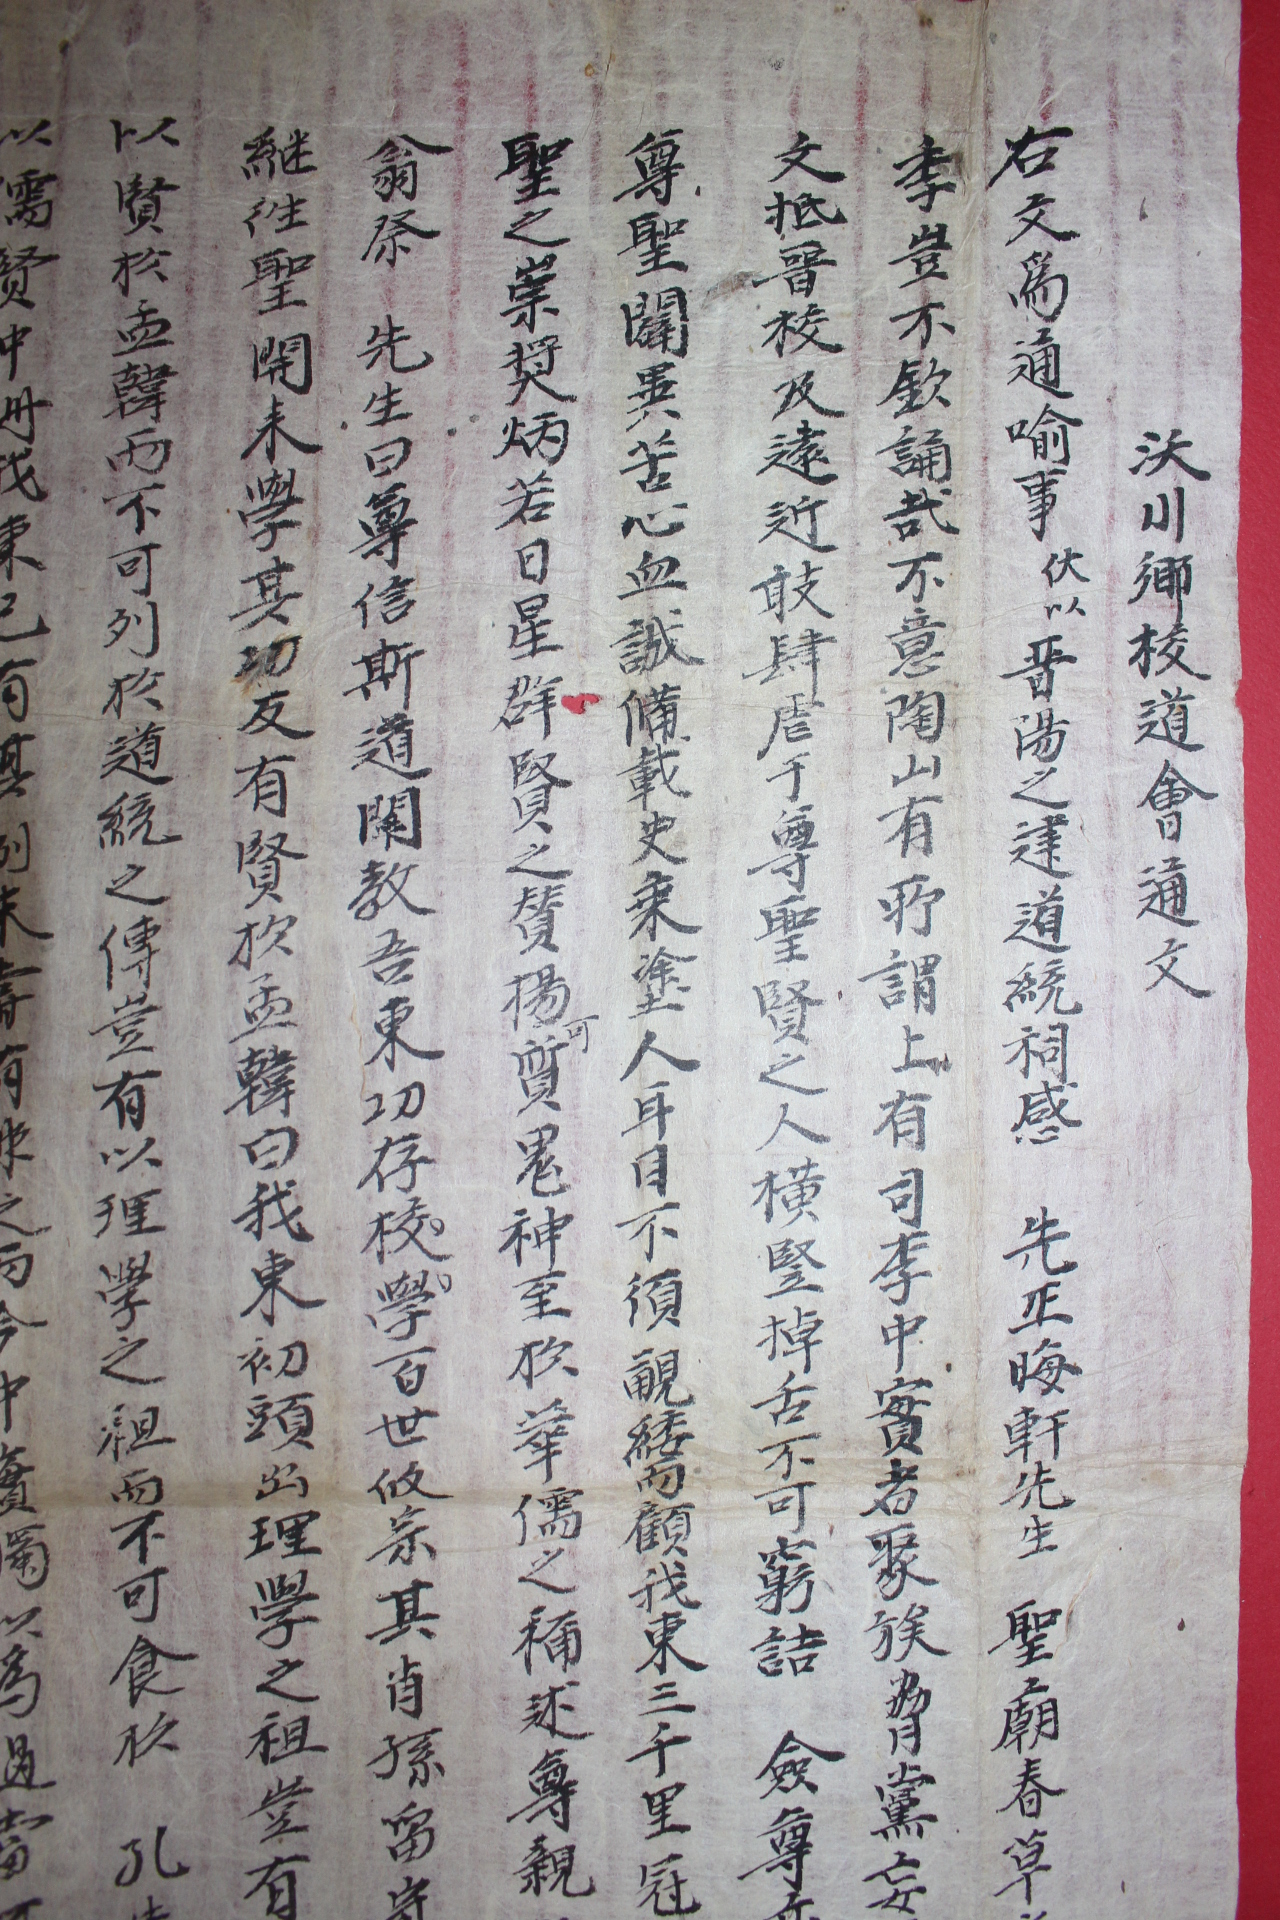 沃川鄉校道會通文
右文爲通喻事伏以晋陽之建道統祠感 先正晦軒先生 聖廟春草
李豈不欽誦哉不意陶山有所謂上有司李中實者聚族脅黨妄
文抵晋校及遠近敢肆虐于尊聖賢之人橫竪掉舌不可窮詰 僉尊
尊聖闢異苦心血誠備載史乘塗人耳目不須覶縷而顧我東三千里冠
聖之崇奬炳若日星群賢之賛揚可質鬼神至於華儒之稱述尊親
翁祭 先生曰尊信斯道闡教吾東功存校學百世攸宗其肖孫留守
継往聖開来學其功反有賢於孟韓曰我東初頭出理學之祖豈有
以賢於孟韓而不可列於道統之傳豈有以理學之祖而不可食於 孔
以儒賢中 我東已有其列 有 之而今中實獨以爲過當